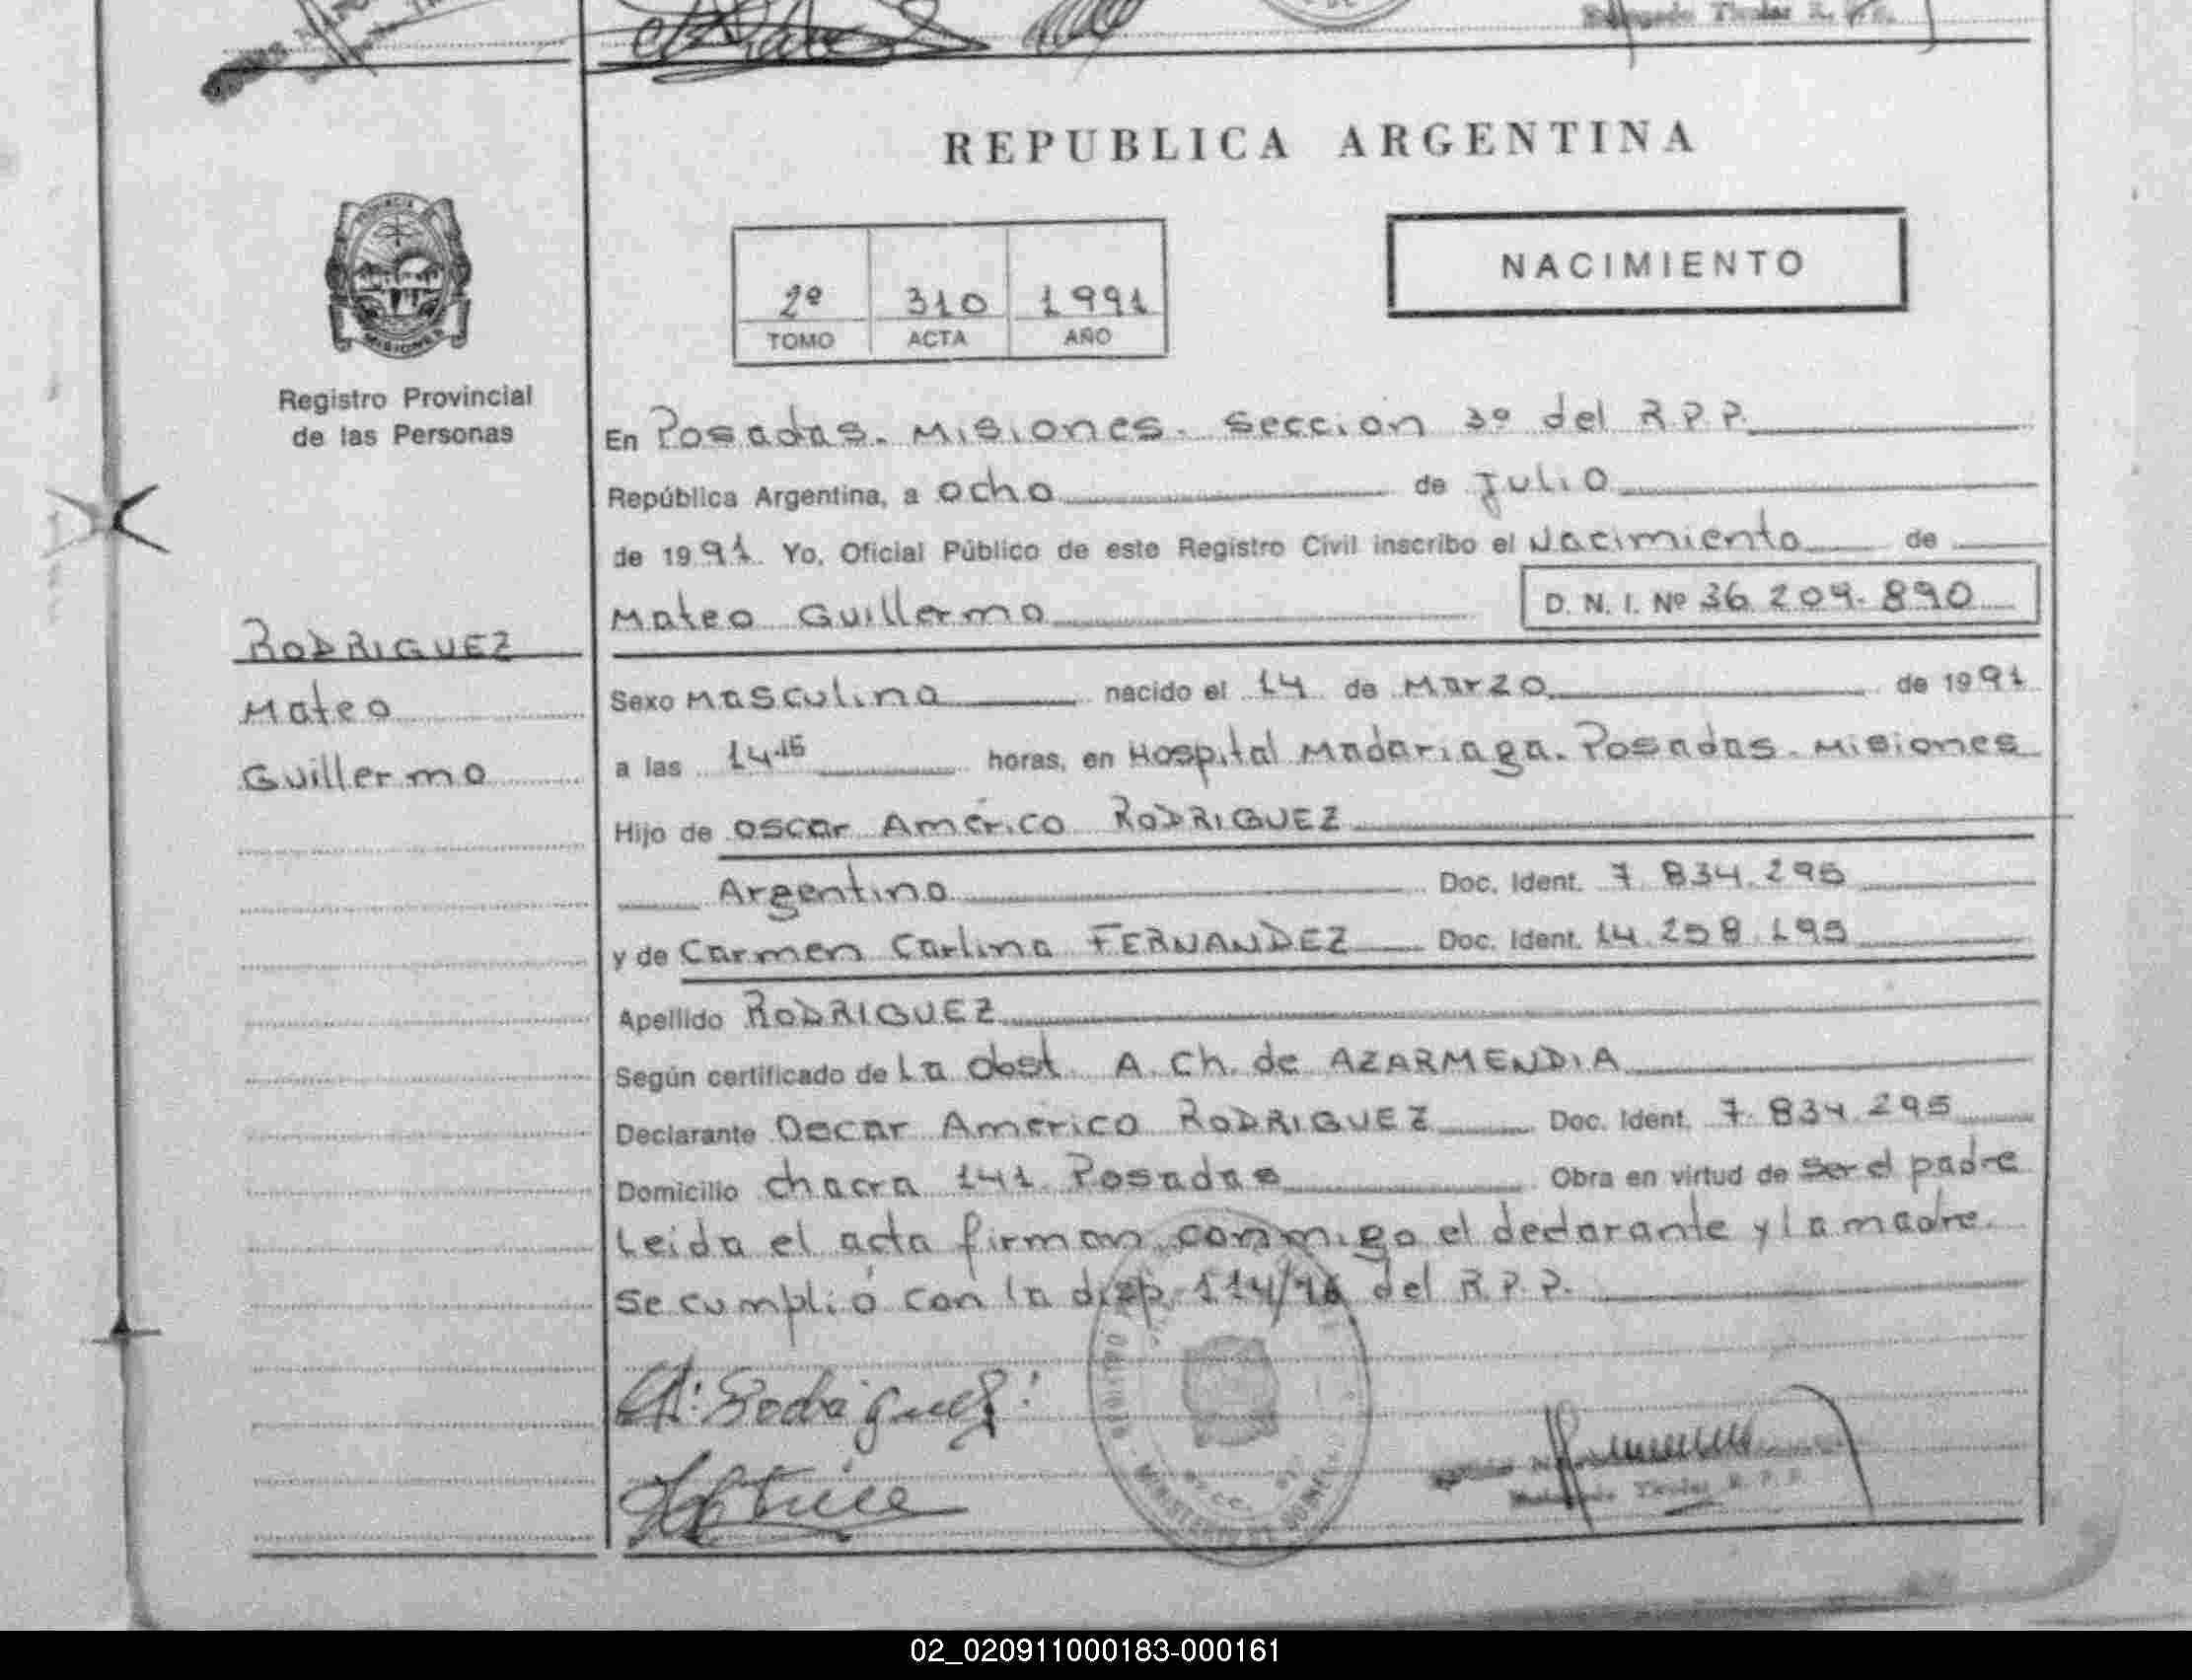 REPUBLICA ARGENTINA
PROVINCIA
MISIONES
Registro Provincial
de las Personas
2º 310 1991
TOMO ACTA AÑO
NACIMIENTO
En Posadas. Misiones. Sección 3º del R.P.P.
República Argentina, a ocho de Julio
de 1991. Yo, Oficial Público de este Registro Civil inscribo el Nacimiento de
Mateo Guillermo D. N. I. Nº 36.209.890
RODRIGUEZ
Mateo
Guillermo
Sexo Masculino nacido el 14 de Marzo de 1991
a las 14.15 horas, en Hospital Madariaga. Posadas. Misiones
Hijo de Oscar Américo RODRIGUEZ
Argentino Doc. Ident. 7.834.295
y de Carmen Carlina FERNANDEZ Doc. Ident. 14.258.195
Apellido RODRIGUEZ
Según certificado de La Obst. A. Ch. de AZARMENDIA
Declarante Oscar Américo RODRIGUEZ Doc. Ident. 7.834.295
Domicilio chacra 141 Posadas Obra en virtud de ser el padre
Leida el acta firman conmigo el declarante y la madre.
Se cumplió con la disp. 114/76 del R.P.P.
Rodriguez
Titular R. P. P.
02_020911000183-000161